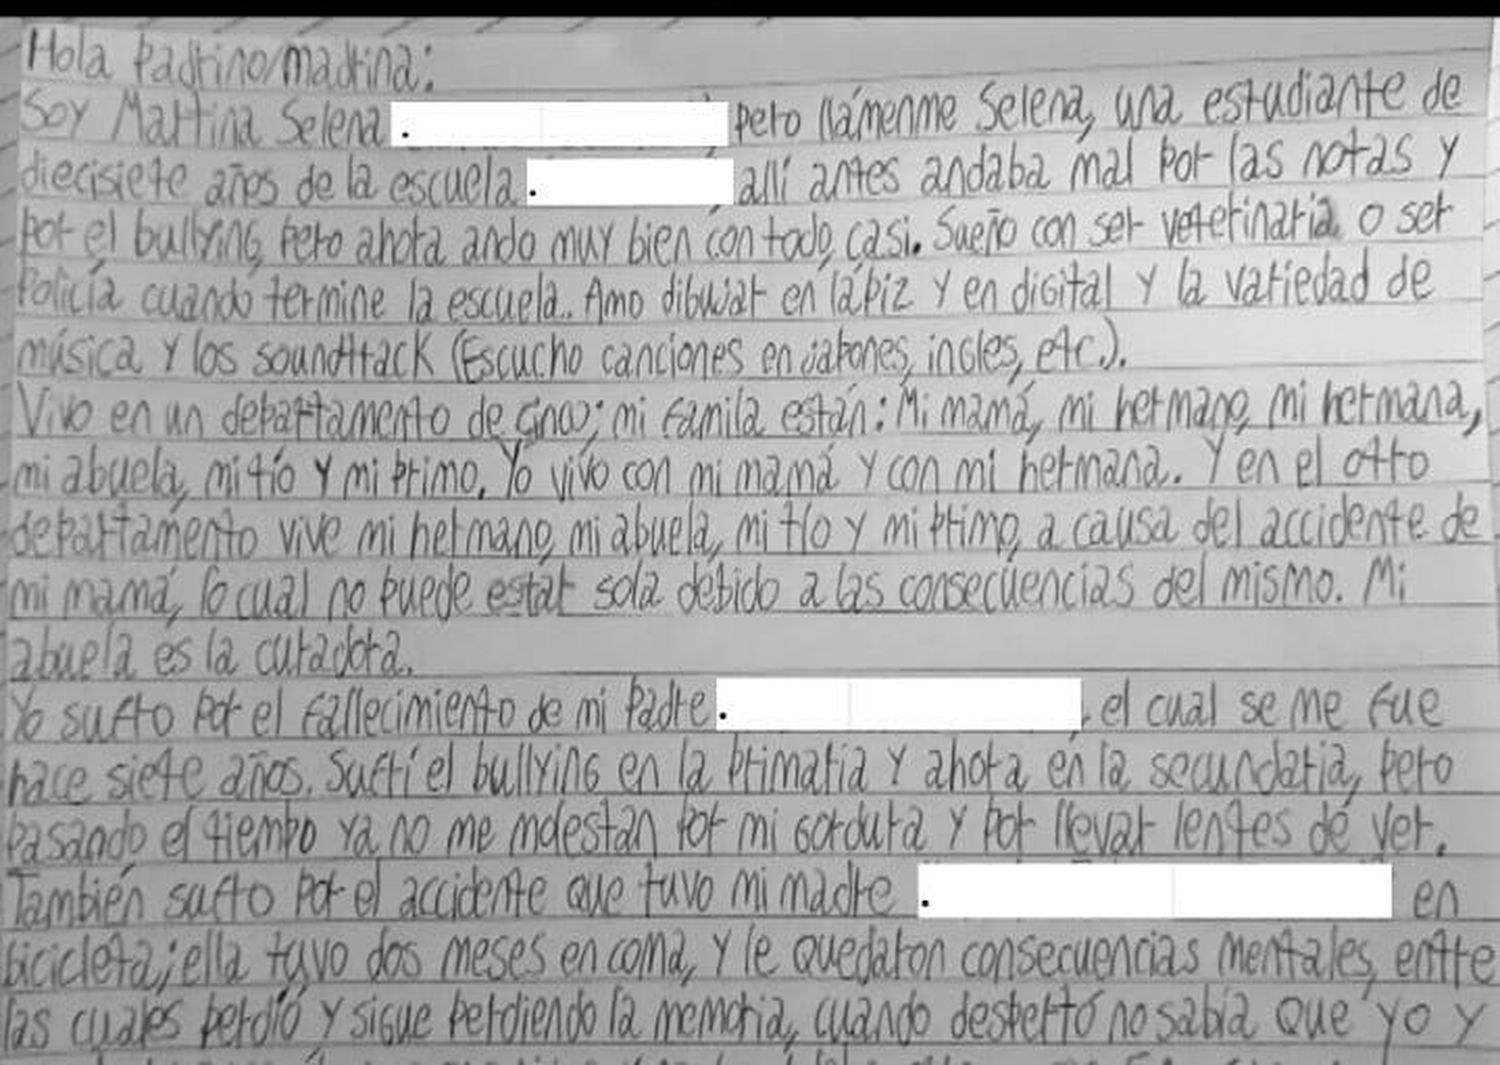 Hola padrino/madrina:
Soy Martina Selena . pero llámenme Selena, una estudiante de
diecisiete años de la escuela . , allí antes andaba mal por las notas y
por el bullying, pero ahora ando muy bien con todo, casi. Sueño con ser veterinaria o ser
Policía cuando termine la escuela. Amo dibujar en lápiz y en digital y la variedad de
música y los soundtrack (Escucho canciones en japones, ingles, etc.).
Vivo en un departamento de cinco; mi famila están: Mi mamá, mi hermano, mi hermana,
mi abuela, mi tío y mi primo. Yo vivo con mi mamá y con mi hermana. Y en el otro
departamento vive mi hermano, mi abuela, mi tío y mi primo, a causa del accidente de
mi mamá, lo cual no puede estar sola debido a las consecuencias del mismo. Mi
abuela es la curadora.
Yo sufro por el fallecimiento de mi padre . , el cual se me fue
hace siete años. Sufrí el bullying en la primaria y ahora en la secundaria, pero
pasando el tiempo ya no me molestan por mi gordura y por llevar lentes de ver.
También sufro por el accidente que tuvo mi madre . en
bicicleta; ella tuvo dos meses en coma, y le quedaron consecuencias mentales, entre
las cuales perdió y sigue perdiendo la memoria, cuando despertó no sabía que yo y